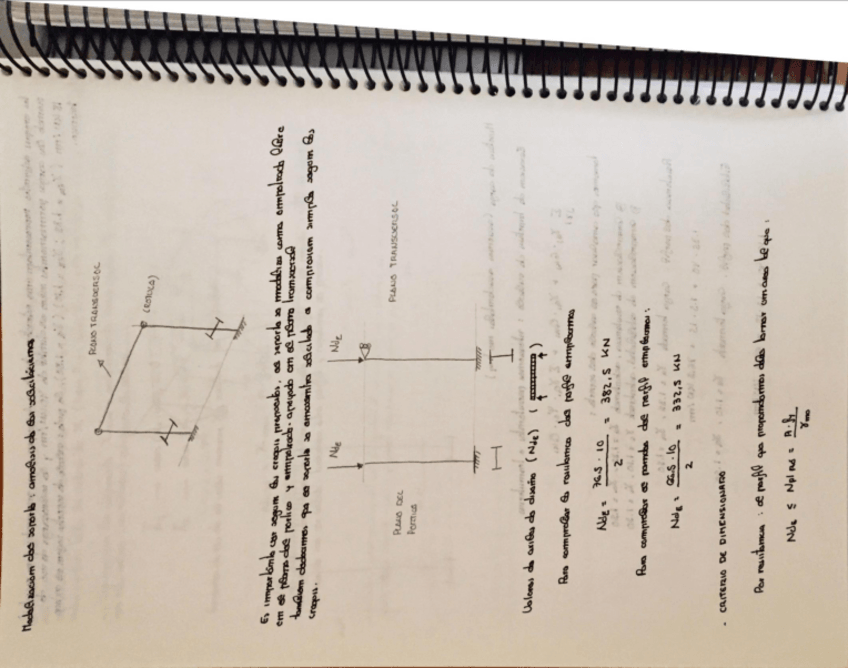 Modelización del soporte: análisis de las solicitaciones
PLANO TRANSVERSAL
(RÓTULA)
Es importante ver según los croquis preparados, el soporte se modeliza como empotrado libre
en el plano del pórtico y empotrado-apoyado en el plano transversal
también destacamos que el soporte se encuentra solicitado a compresión simple según los
croquis.
NdE
NdE
PLANO DEL
PÓRTICO
PLANO TRANSVERSAL
Valores de cálculo de diseño (NdE) ( )
Para comprobar la resistencia del perfil empleamos
NdE = 76.5 · 10 / 2 = 382,5 KN
Para comprobar el pandeo del perfil empleamos:
NdE = 66.5 · 10 / 2 = 332,5 KN
- CRITERIO DE DIMENSIONADO
Por resistencia: el perfil que propondremos debe tener un área tal que:
NdE ≤ Npl Rd = A · fy / γM0